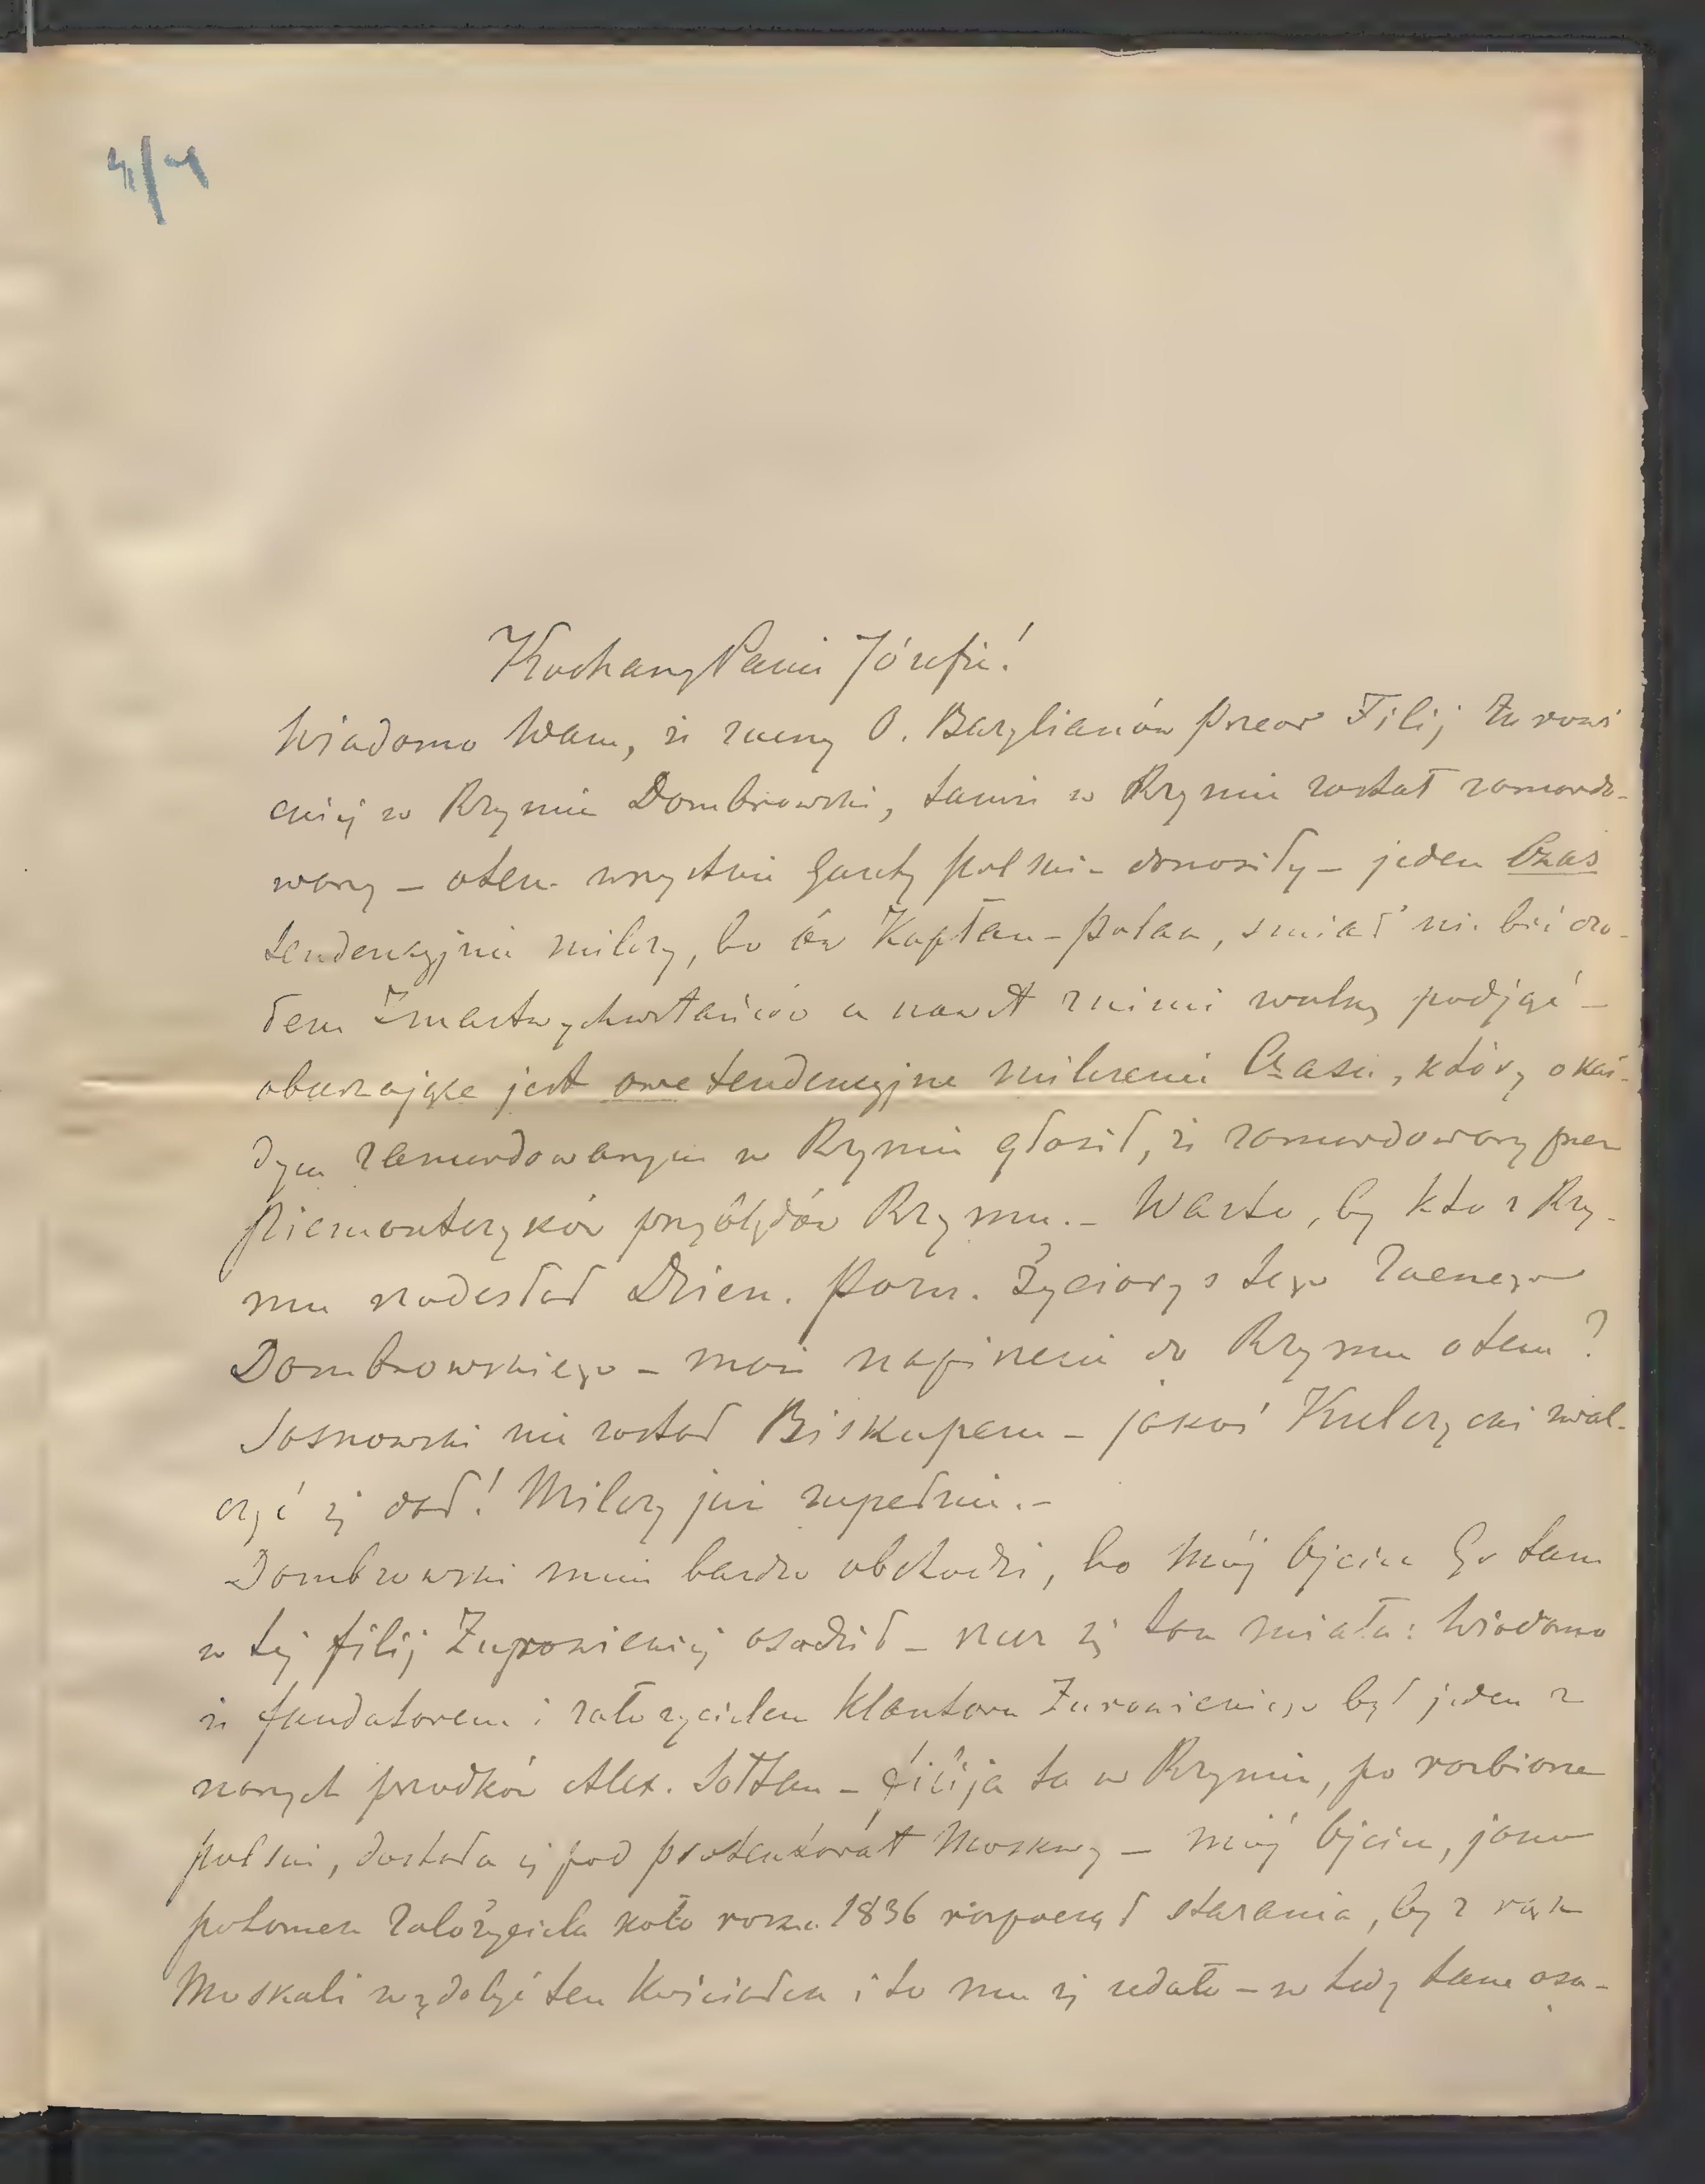 4/4
Kochany Panie Józefie!
Wiadomo Wam, że zacny O. Bazylianów Przeor Filij Żurowi
ckiéj w Rzymie Dombrowski, tamże w Rzymie został zamordo-
wany – otem wszystkie Gazety polskie donosiły – jeden Czas
tendencyjnie milczy, bo ów Kapłan-Polak, śmiał nie być
Zmartwychwstańców a nawet z nimi walkę podjąć –
oburzające jest owe tendencyjne milczenie Czasu, który o każ-
dym zamordowanym w Rzymie głosił, że zamordowany przez
Piemontczyków przybłędów Rzymu. – Warto, by kto z Rzy-
mu nadesłał Dzien. Pozn. życiorys tego Zacnego
Dombrowskiego – może napiszecie do Rzymu otem?
Sosnowski nie został Biskupem – jakoś Kulczycki zwal-
czyć się dał! Milczy już zupełnie. –
Dombrowski mnie bardzo obchodzi, bo mój Ojciec Go tam
w téj filij Żurowickiéj osadził – rzecz się tak miała: Wiadomo
że fundatorem i założycielem Klasztoru Żurowickiego był jeden z
naszych przodków Alex. Sołtan – filija ta w Rzymie, po rozbiorze
polski, dostała się pod protektorat Moskwy – mój Ojciec, jako
potomek Założyciela koło roku 1836 rospoczął starania, by z rąk
Moskali wydobyć ten Kościołek i to mu się udało – w tedy tam osa-